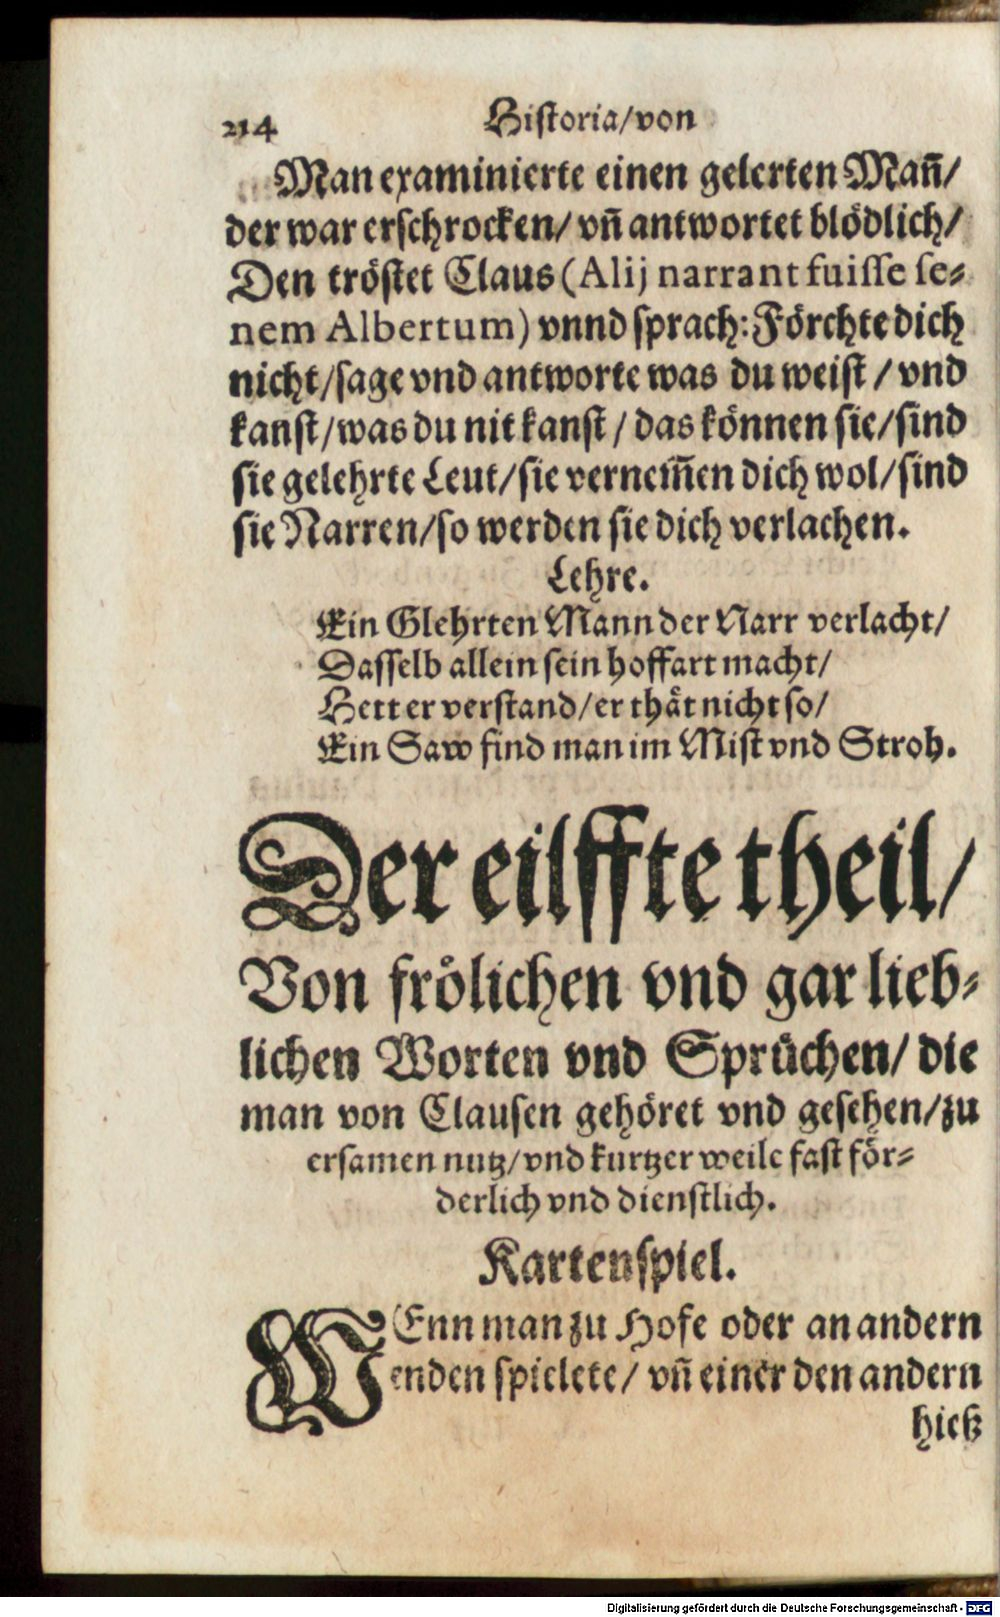 214 Historia/von
Man examinierte einen gelerten Mañ/
der war erschrocken/ vñ antwortet blödlich/
Den tröstet Claus (Alij narrant fuisse se⸗
nem Albertum) vnnd sprach: Förchte dich
nicht/sage vnd antworte was du weist / vnd
kanst/was du nit kanst / das können sie/sind
sie gelehrte Leut/sie vernem̃en dich wol/sind
sie Narren/so werden sie dich verlachen.
Lehre.
Ein Glehrten Mann der Narr verlacht/
Dasselb allein sein hoffart macht/
Hett er verstand/er thåt nicht so/
Ein Saw find man im Mist vnd Stroh.
Der eilffte theil/
Von frölichen vnd gar lieb⸗
lichen Worten vnd Sprůchen/ die
man von Clausen gehöret vnd gesehen/zu
ersamen nutz/vnd kurtzer weile fast för⸗
derlich vnd dienstlich.
Kartenspiel.
WEnn man zu Hofe oder an andern
enden spielete/ vñ einer den andern
hieß
Digitalisierung gefördert durch die Deutsche Forschungsgemeinschaft - DFG